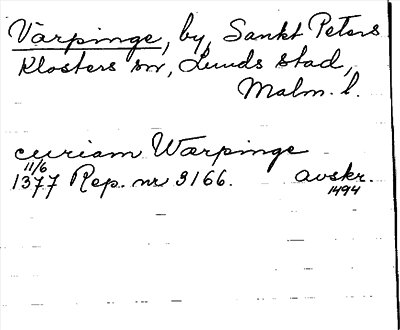 Värpinge, by, Sankt Peters
Klosters sn, Lunds stad,
Malm. l.
curiam Wærpinge
11/6
1377 Rep. nr 3166. avskr.
1494